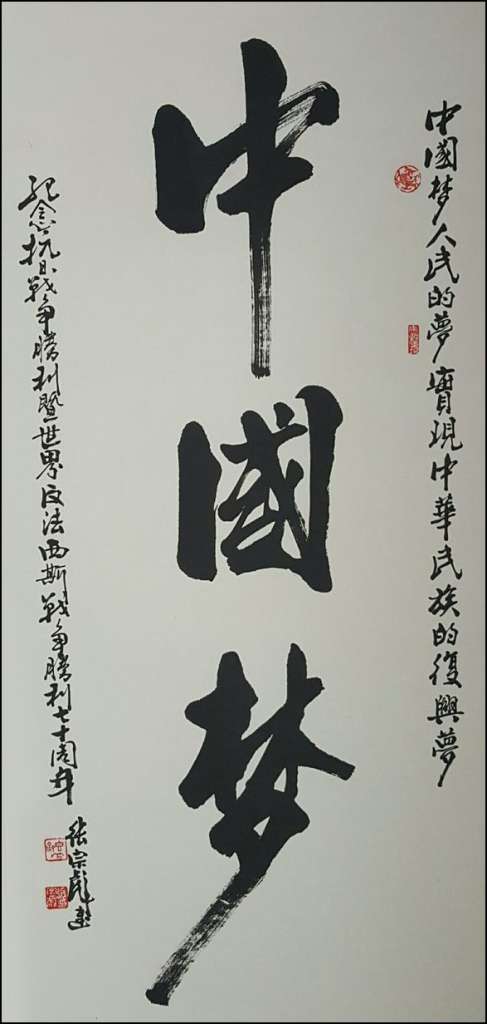 中國梦人民的夢實現中華民族的復興夢
中國梦
紀念抗日戰争勝利暨世界反法西斯戰争勝利七十周年
張宗彪